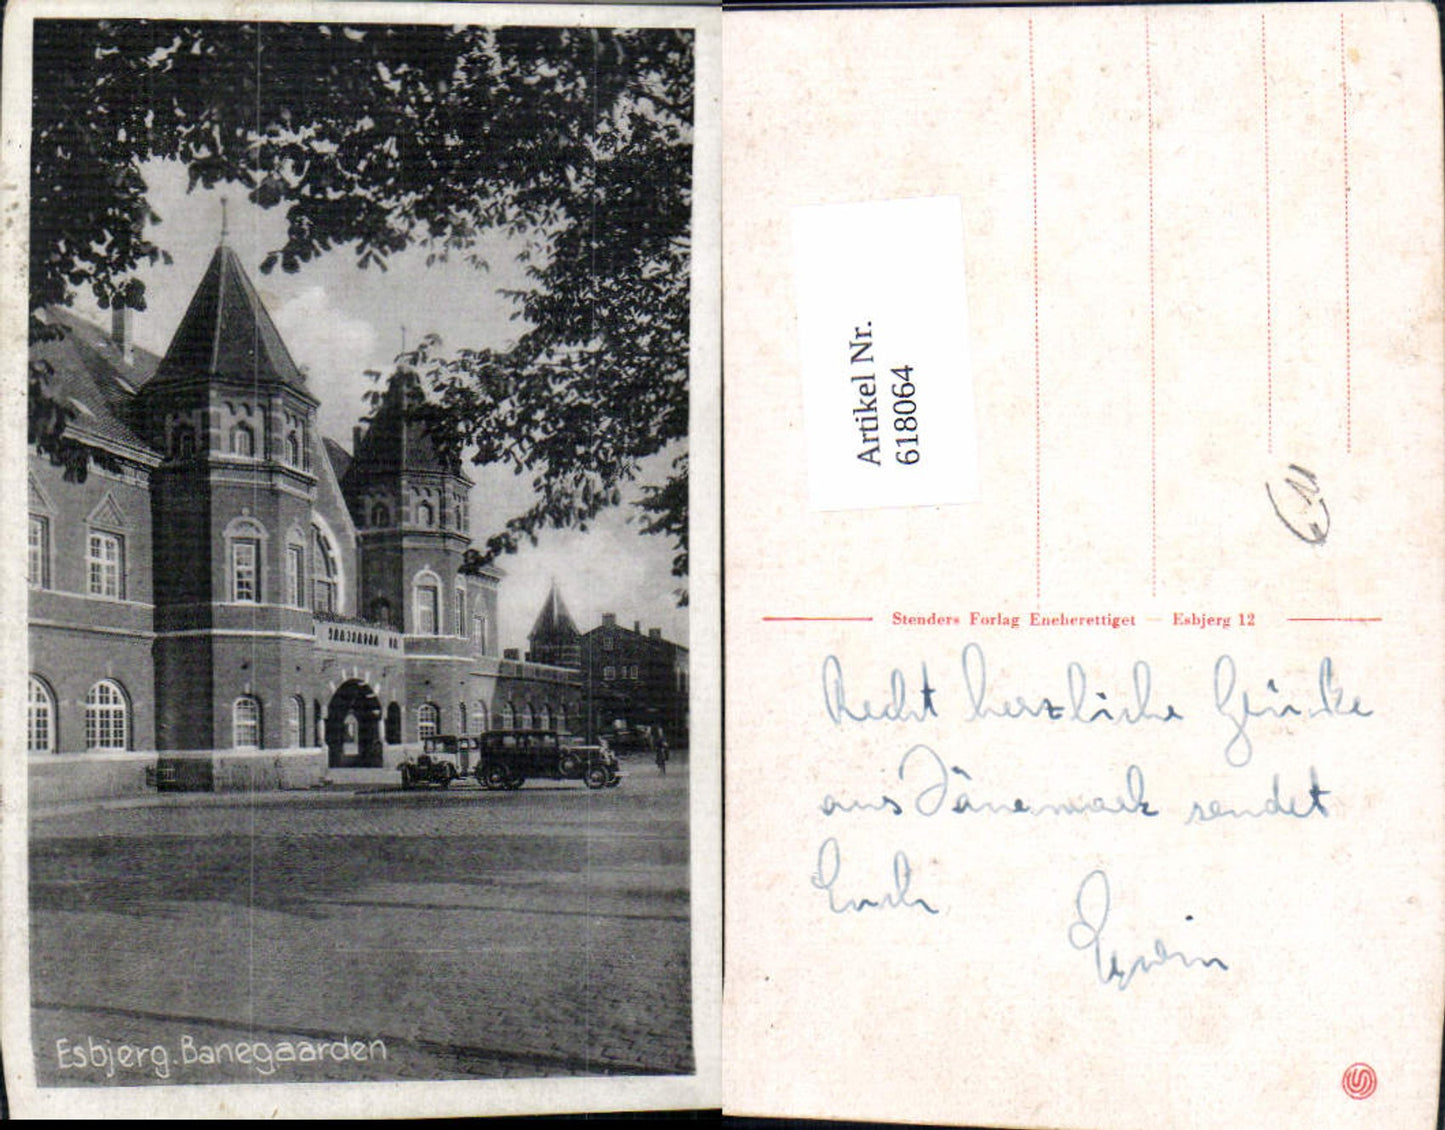 Esbjerg. Banegaarden
Artikel Nr.
618064
Stenders Forlag Eneberettiget — Esbjerg 12
Recht herzliche Grüße
aus Dänemark sendet
Euch
Erwin